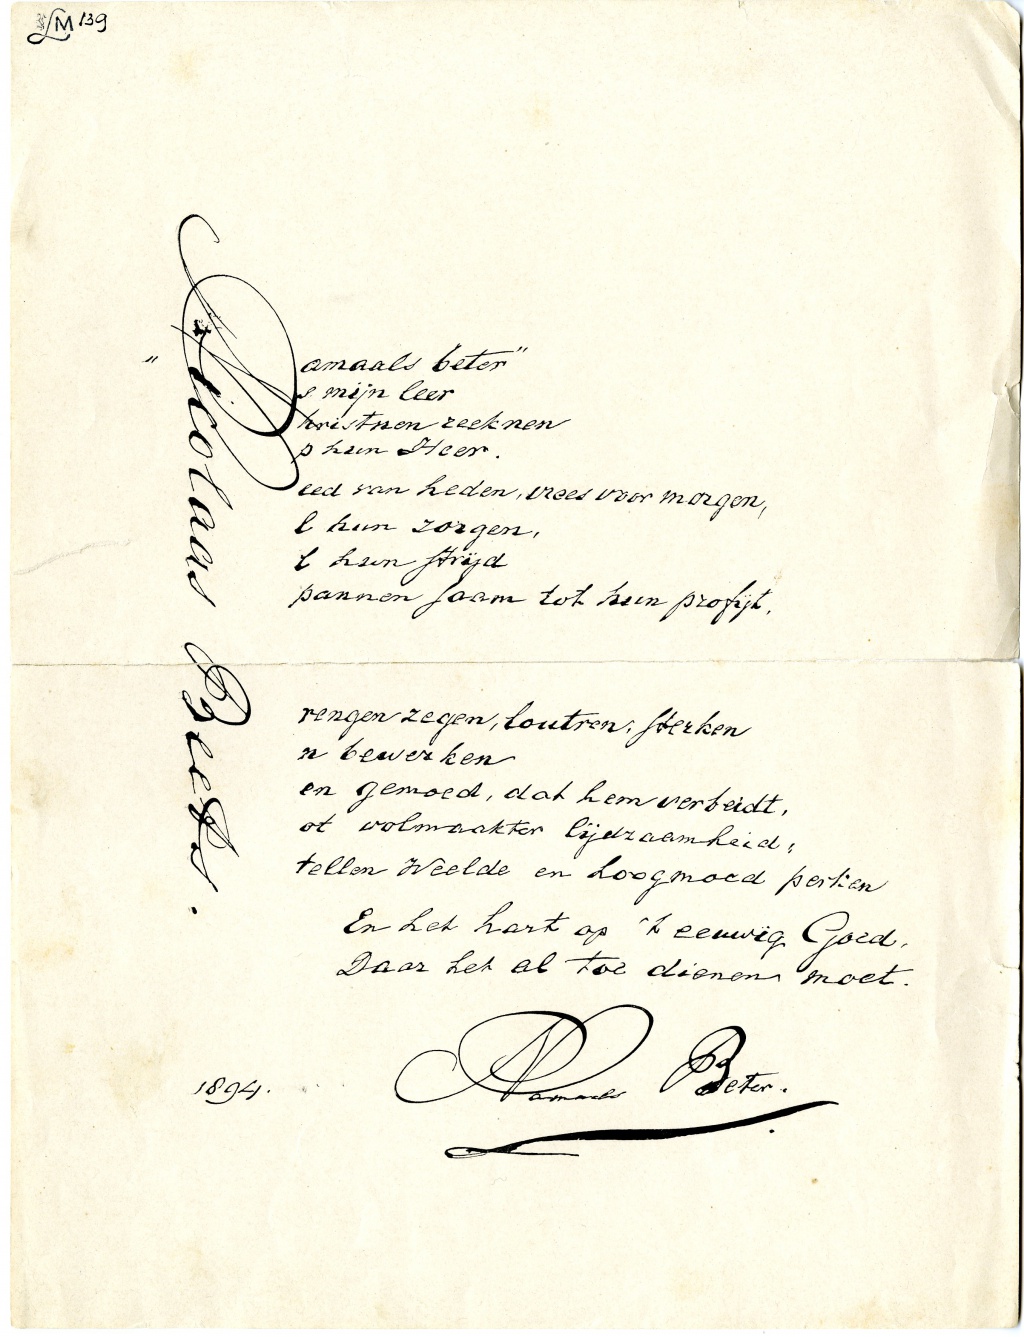 LM 139
Nicolaas Beets.
" amaals beter"
s mijn leer
hristnen reeknen
p hun Heer.
eed van heden, vrees voor morgen,
l hun zorgen,
l hun strijd
pannen saam tot hun profijt,
rengen zegen, loutren, sterken
n bewerken
en gemoed, dat hem verbeidt,
ot volmaakter lijdzaamheid,
tellen Weelde en hoogmoed perken
En het hart op 't eeuwig Goed,
Daar het al toe dienen moet.
1894.
Namaals Beter.